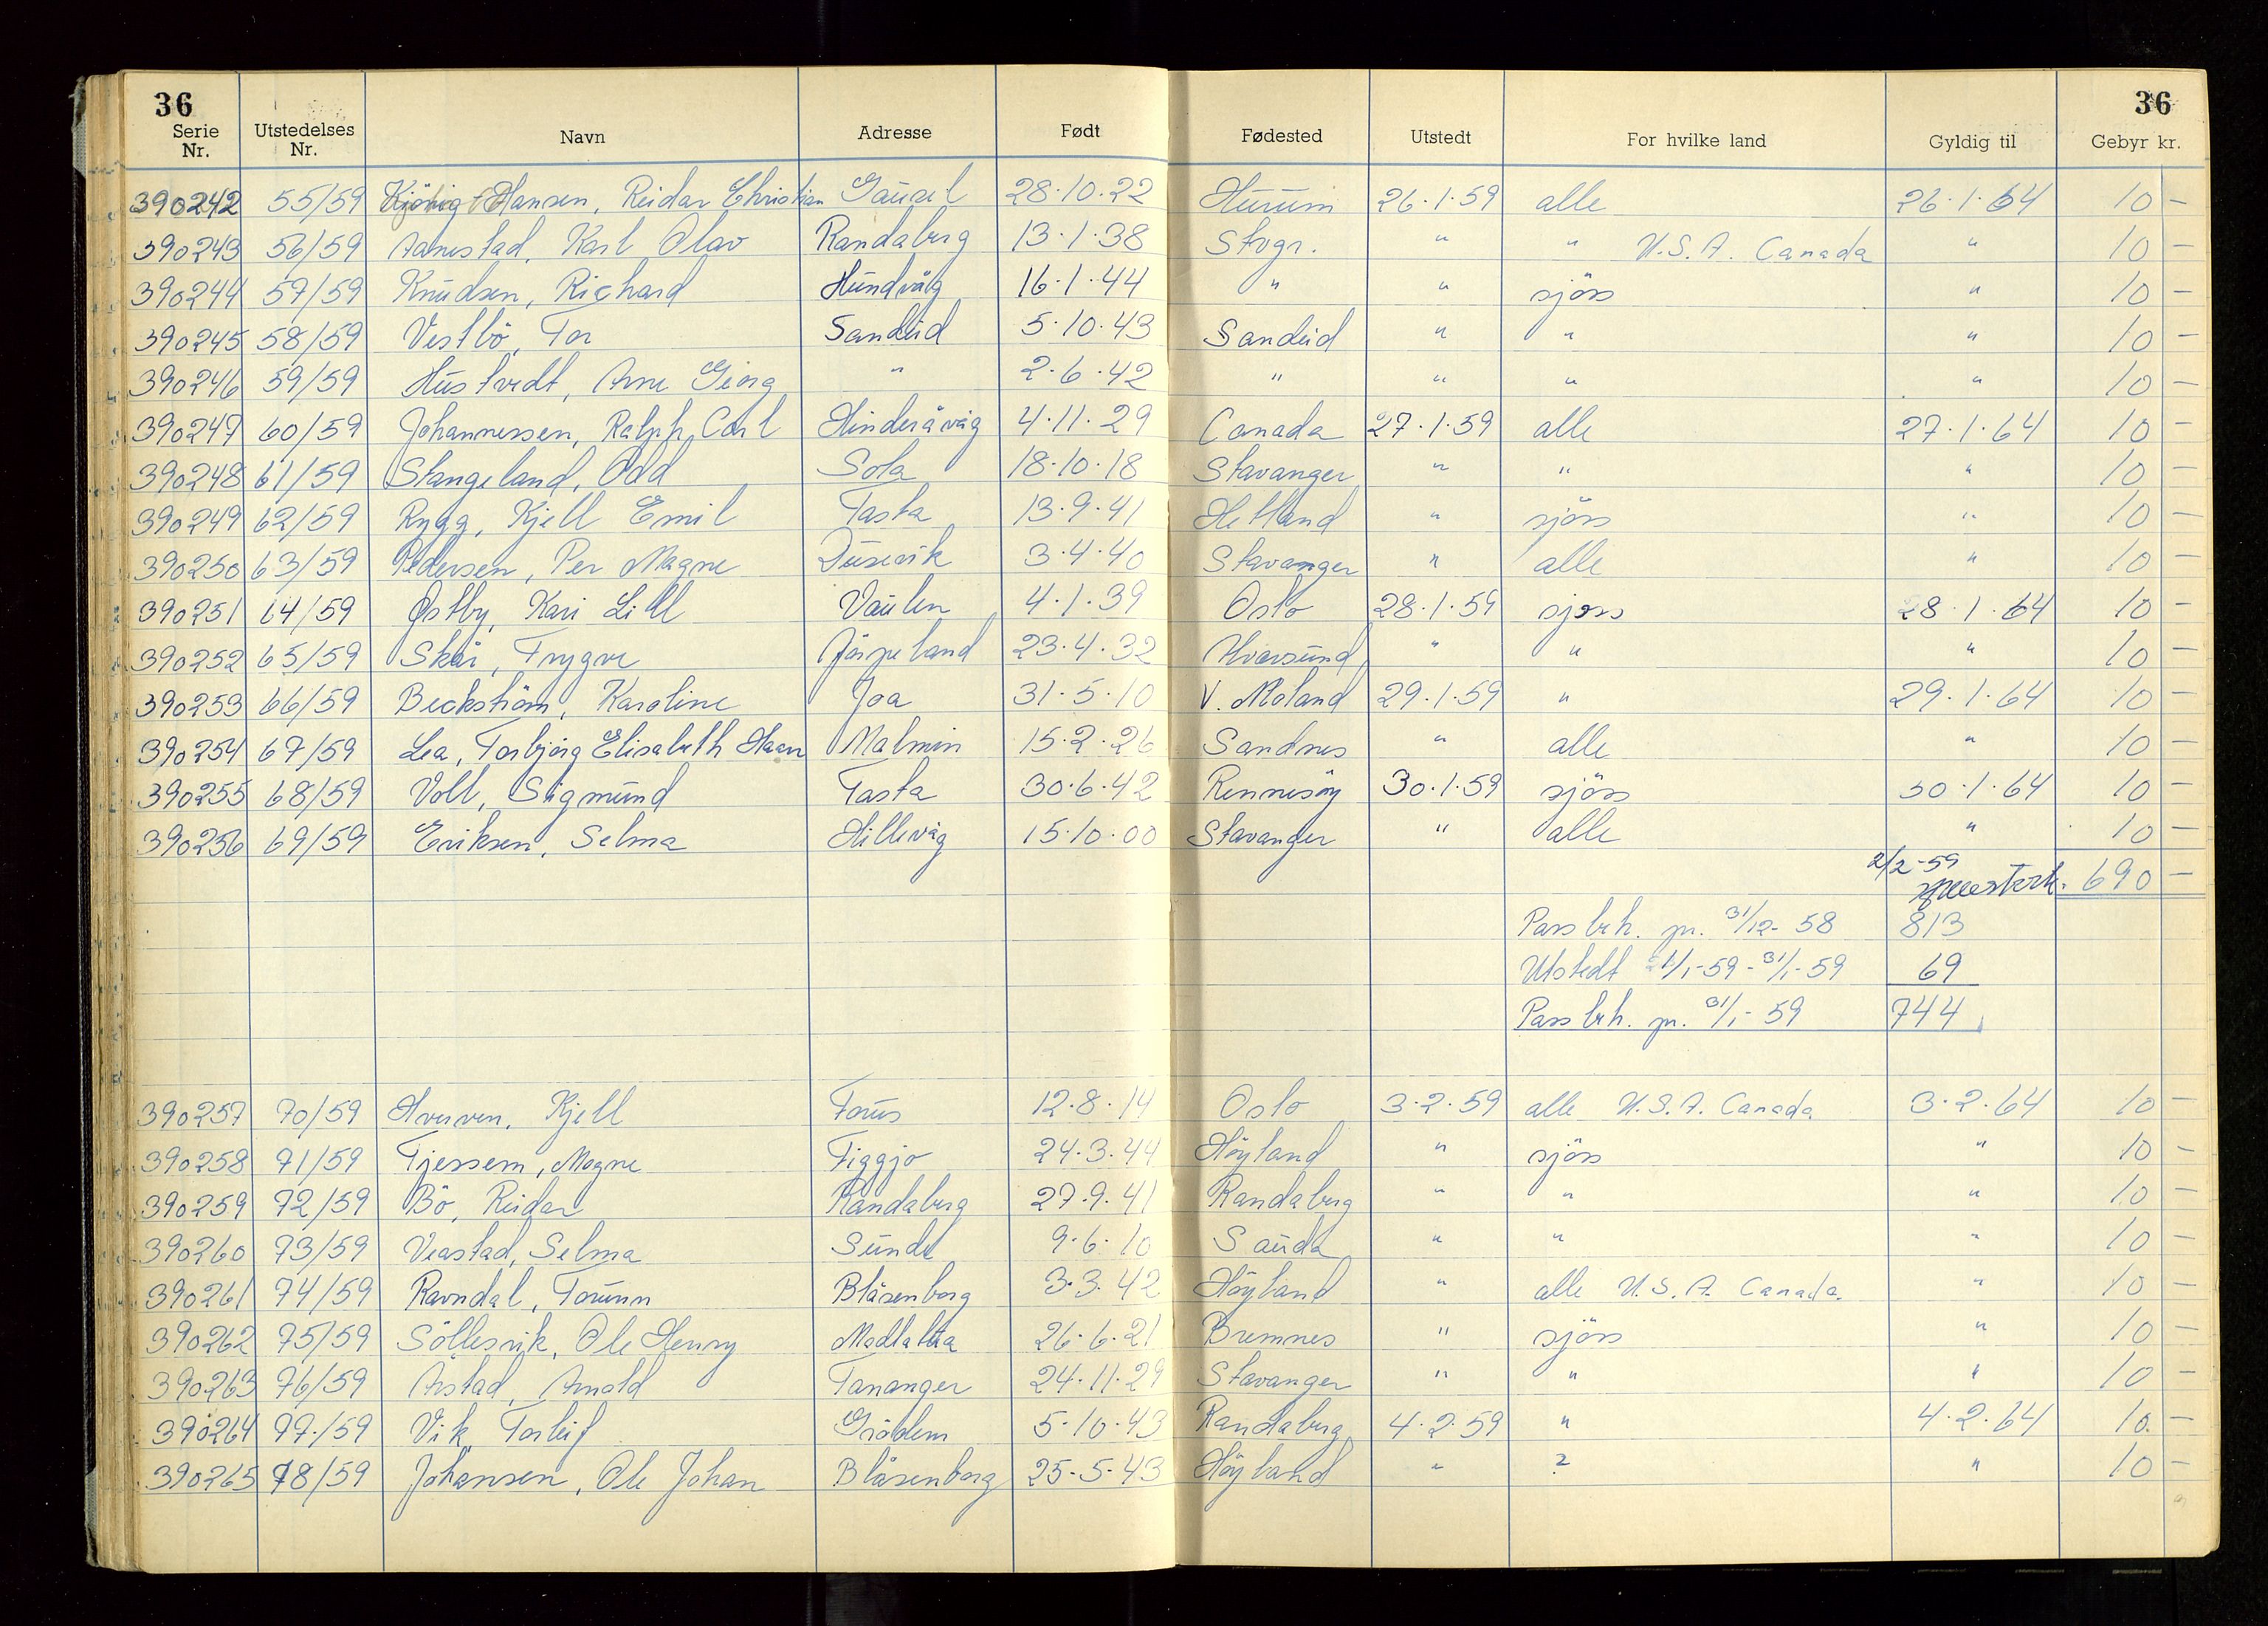 36 36
Serie Nr. Utstedelses Nr. Navn Adresse Født Fødested Utstedt For hvilke land Gyldig til Gebyr kr.
390242 55/59 Kjörvig Hansen, Reidar Christian Gausel 28.10.22 Hurum 26.1.59 alle 26.1.64 10 -
390243 56/59 Aanestad, Karl Olav Randaberg 13.1.38 Stvgr. " " U.S.A. Canada " 10 -
390244 57/59 Knudsen, Richard Hundvåg 16.1.44 " " sjöss " 10 -
390245 58/59 Vestbö, Tor Sandeid 5.10.43 Sandeid " " " 10 -
390246 59/59 Hustvedt, Arne Georg " 2.6.42 " " " " 10 -
390247 60/59 Johannessen, Ralph Carl Hinderåvåg 4.11.29 Canada 27.1.59 alle 27.1.64 10 -
390248 61/59 Stangeland, Odd Sola 18.10.18 Stavanger " " " 10 -
390249 62/59 Rygg, Kjell Emil Tasta 13.9.41 Hetland " sjöss " 10 -
390250 63/59 Pedersen, Per Magne Dusevik 3.4.40 Stavanger " alle " 10 -
390251 64/59 Østby, Kari Lill Vaulen 4.1.39 Oslo 28.1.59 sjøss 28.1.64 10 -
390252 65/59 Skår, Trygve Jörpeland 23.4.32 Alversund " " " 10 -
390253 66/59 Beckström, Karoline Joa 31.5.10 V. Moland 29.1.59 " 29.1.64 10 -
390254 67/59 Lea, Torbjörg Elisabeth Haar Malmin 15.2.26 Sandnes " alle " 10 -
390255 68/59 Voll, Sigmund Tasta 30.6.42 Rennesöy 30.1.59 sjöss 30.1.64 10 -
390256 69/59 Eriksen, Selma Hillevåg 15.10.00 Stavanger " alle " 10 -
2/2-59 690 -
Pass beh. pr. 31/12-58 813
Utstedt 1/1-59 - 31/1-59 69
Pass beh. pr. 31/1-59 744
390257 70/59 Hverven, Kjell Forus 12.8.14 Oslo 3.2.59 alle U.S.A. Canada 3.2.64 10 -
390258 71/59 Tjessem, Magne Figgjo 24.3.44 Höyland " sjöss " 10 -
390259 72/59 Bö, Reidar Randaberg 27.9.41 Randaberg " " " 10 -
390260 73/59 Veastad, Selma Sunde 9.6.10 Sauda " " " 10 -
390261 74/59 Ravndal, Torunn Blåsenborg 3.3.42 Höyland " alle U.S.A. Canada. " 10 -
390262 75/59 Söllesvik, Ole Henry Madlalia 26.6.21 Bremnes " sjöss " 10 -
390263 76/59 Årstad, Arnold Tananger 24.11.29 Stavanger " " " 10 -
390264 77/59 Vik, Torleif Grödem 5.10.43 Randaberg 4.2.59 " 4.2.64 10. -
390265 78/59 Johansen, Ole Johan Blåsenborg 25.5.43 Höyland " ? " 10 -